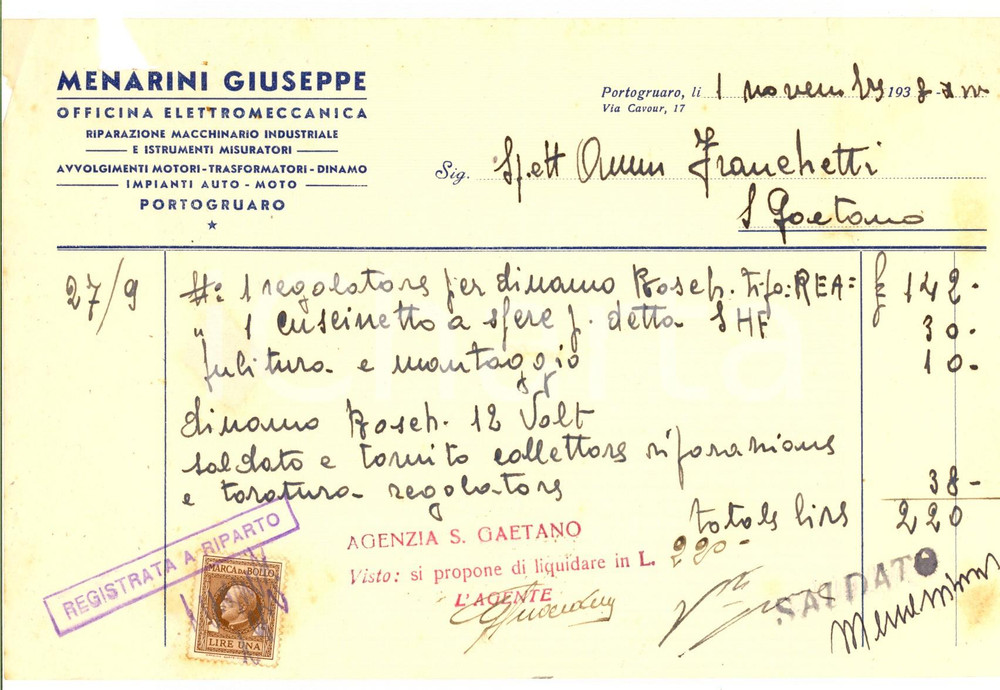 MENARINI GIUSEPPE
OFFICINA ELETTROMECCANICA
RIPARAZIONE MACCHINARIO INDUSTRIALE
E ISTRUMENTI MISURATORI
AVVOLGIMENTI MOTORI-TRASFORMATORI-DINAMO
IMPIANTI AUTO - MOTO
PORTOGRUARO
Portogruaro, lì 1 novembre 1938
Via Cavour, 17
Sig. Spett Amm Franchetti
S Gaetano
27/9 N: 1 regolatore per dinamo Bosch. tipo: REA = £ 142-
" 1 cuscinetto a sfere p. detta SHF 30-
pulitura e montaggio 10-
dinamo Bosch. 12 Volt
saldato e tornito collettore riparazione
e taratura regolatore 38-
totale lire 220
REGISTRATA A RIPARTO
AGENZIA S. GAETANO
Visto: si propone di liquidare in L. 220-
L'AGENTE
SALDATO
MARCA DA BOLLO
LIRE UNA